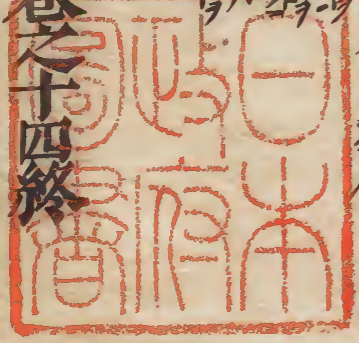 日本
政府
圖書
卷之十四終